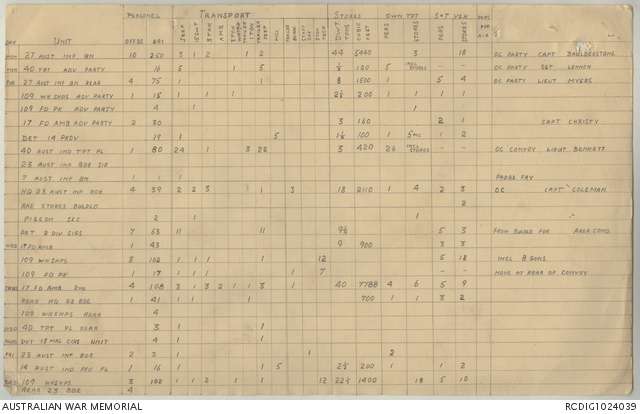 PERSONNEL TRANSPORT STORES OWN TPT S & T VEH
DAY UNIT OFFRS ORS JEEP AMB TONS CUBIC FEET PERS STORES PERS STORES
MON 27 AUST INF BN 10 250 3 1 2 1 2 44 5060 3 18 OC PARTY CAPT BAULDERSTONE
40 TPT ADV PARTY 16 5 1 5 1/2 120 5 STORES - - OC PARTY SGT LENNON
TUE 27 AUST INF BN REAR 4 75 1 1 8 1500 1 5 4 OC PARTY LIEUT MYERS
109 WKSHPS ADV PARTY 18 1 1 2 1/2 200 1 1 1 1
109 FD PK ADV PARTY 4 1 1
17 FD AMB ADV PARTY 2 30 3 160 2 1 CAPT CHRISTY
DET 1A PROV 19 1 5 1 1/2 100 1 5 MC 1 2
40 AUST IND TPT PL 1 80 24 1 3 28 3 420 26 STORES - - OC CONVOY LIEUT BENNETT
23 AUST IND BDE SIG
7 AUST INF BN 1 1 1 PADRE FAY
HQ 23 AUST INF BDE 4 39 2 2 3 1 3 18 2110 1 4 2 3 OC CAPT COLEMAN
AAE STORES BUILDG 2
PIGEON SEC 2 1
DET 2 DIV SIGS 7 53 11 11 9 1/2 5 3 FROM BUKA FOR AREA COMD
WED 17 FD AMB 1 43 9 900 3 3
109 WKSHPS 3 102 1 1 1 12 5 18 INCL B SQNS
109 FD PK 1 17 1 1 1 1 7 - - MOVE AT REAR OF CONVOY
THURS 17 FD AMB 2ND 4 108 3 1 3 2 1 1 3 1 40 7788 4 6 5 9
REAR HQ 23 BDE 1 41 1 1 1 700 1 1 3 2
109 WKSHPS REAR 4
40 TPT PL REAR 3 1 1
DVT 18 MAL CONT UNIT 4 1 1
FRI 23 AUST INF BDE 2 3 1 1 2
19 AUST IND PRO PL 1 16 1 1 5 2 1/2 200 1 1 2
SAT 109 WKSHPS 3 102 1 1 2 1 1 12 22 1/2 1400 18 5 10
REAR 23 BDE 4
AUSTRALIAN WAR MEMORIAL
RCDIG1024039